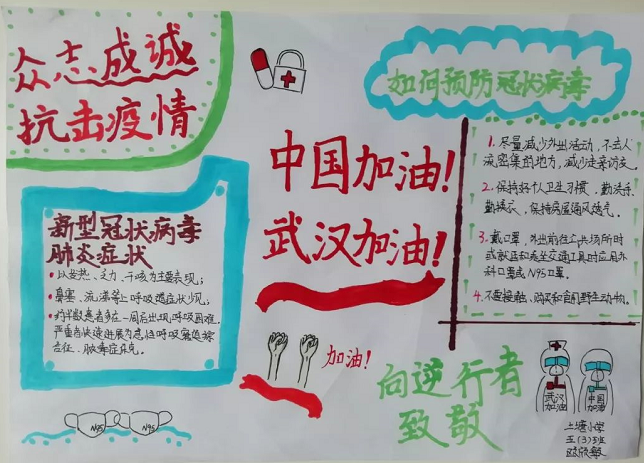 众志成诚
抗击疫情
如何预防冠状病毒
中国加油!
武汉加油!
1. 尽量减少外出活动,不去人
流密集的地方,减少走亲访友。
2. 保持好个人卫生习惯,勤洗手
勤换衣,保持房屋通风透气。
3. 戴口罩,外出前往公共场所时
或就医和乘坐交通工具时应用外
科口罩或N95口罩。
4. 不要接触、购买和食用野生动物。
新型冠状病毒
肺炎症状
以发热、乏力、干咳为主要表现;
鼻塞、流涕等上呼吸道症状少见;
约半数患者多在一周后出现呼吸困难,
严重者快速进展为急性呼吸窘迫综
合征、脓毒症休克。
加油!
向逆行者
致敬
武汉
加油
中国
加油
N95
N95
上塘小学
五(3)班